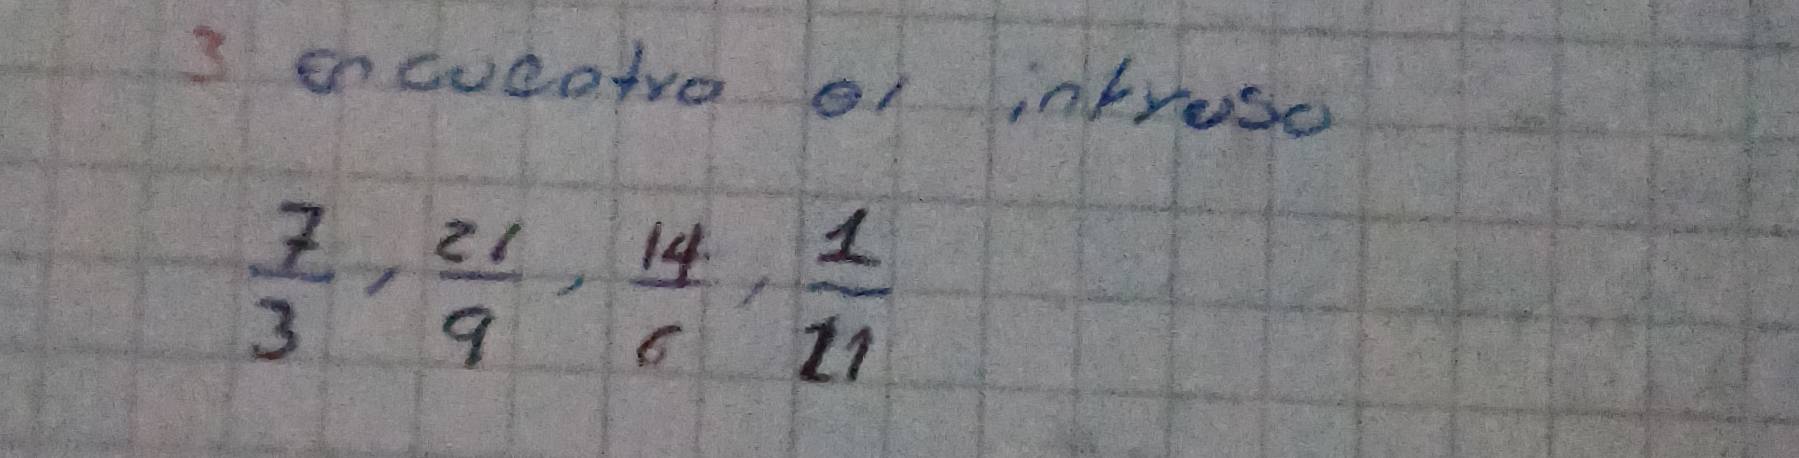 3 encuentra el intruso
7/3, 21/9, 14/6, 1/21